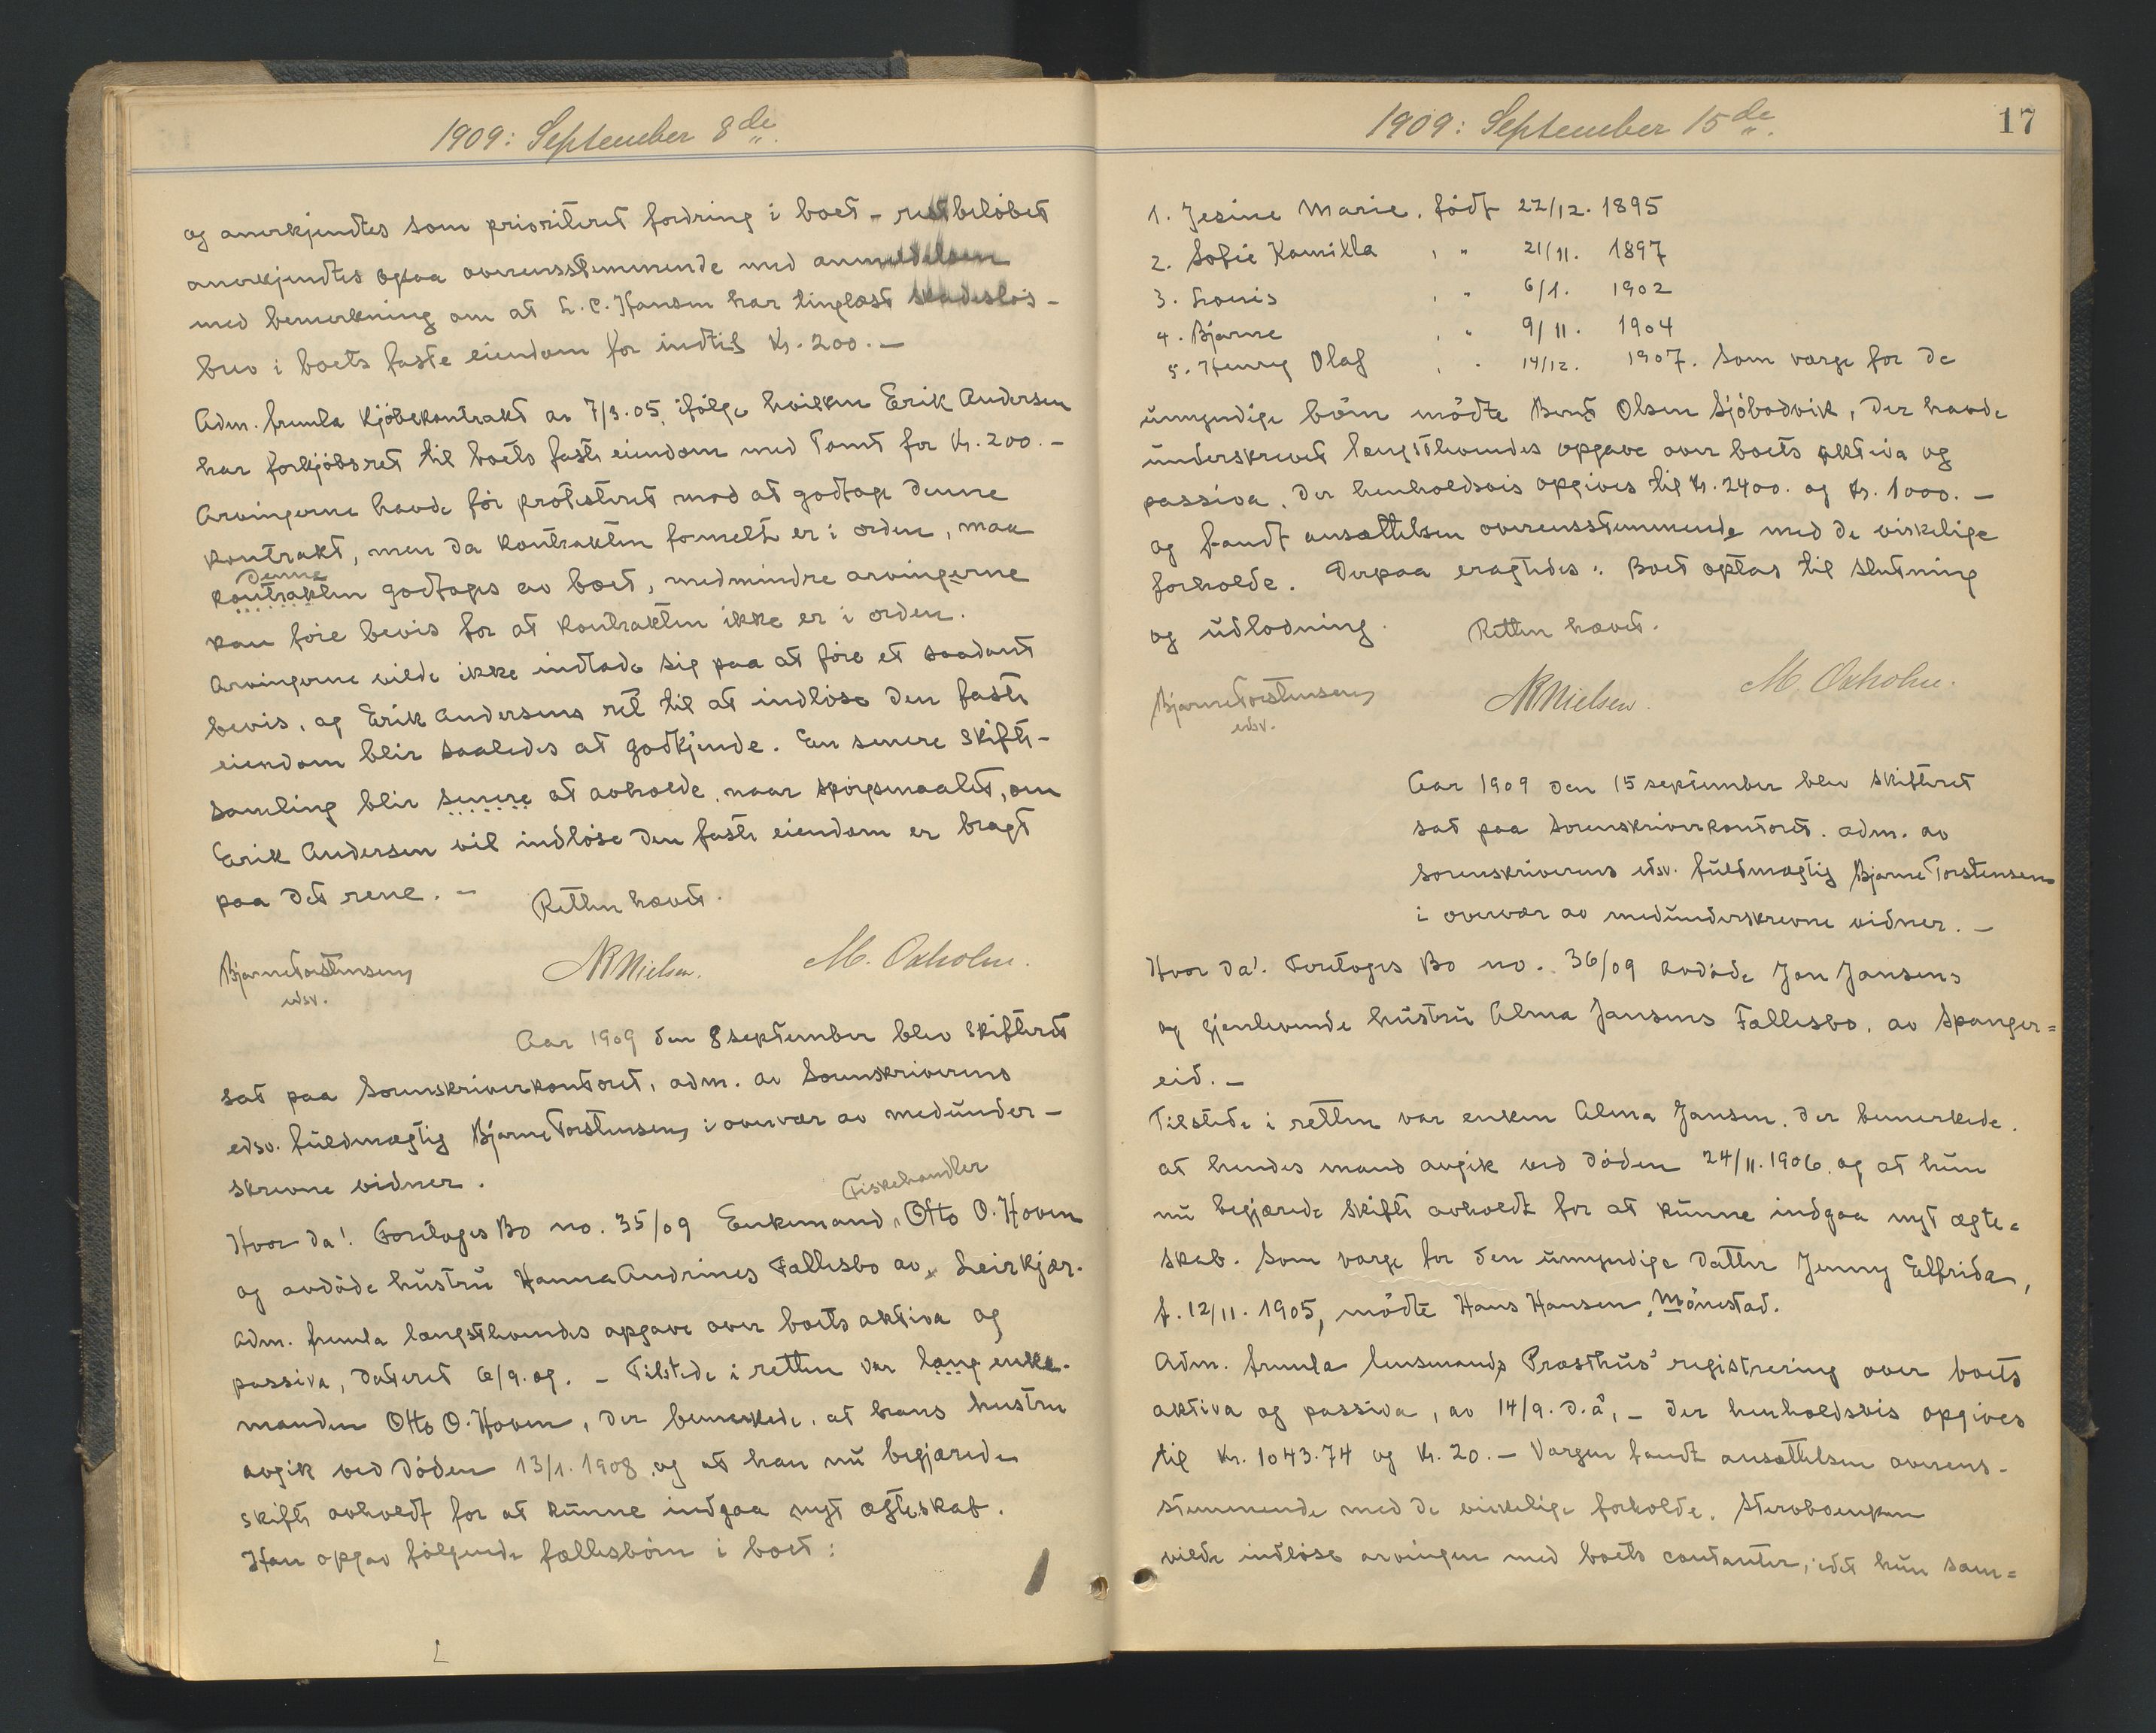 1909: September 8de
og anerkjendtes som prioriteret fordring i boet - restbeløbet
anerkjendtes ogsaa overensstemmende med anmeldelsen
med bemerkning om at L. C. Hansen har tinglæst skadesløs-
brev i boets faste eiendom for indtil Kr. 200.-
Adm. fremla kjøbekontrakt av 7/3.05, ifølge hvilken Erik Andersen
har forkjøbsret til boets faste eiendom med Tomt for Kr. 200.-
Arvingerne havde før protesteret mod at godtage denne
kontrakt, men da kontrakten formelt er i orden, maa
denne
kontrakten godtages av boet, medmindre arvingerne
kan føre bevis for at kontrakten ikke er i orden.
Arvingerne vilde ikke indlade sig paa at føre et saadant
bevis, og Erik Andersens ret til at indløse den faste
eiendom blir saaledes at godkjende. En senere skifte-
samling blir senere at avholde, naar spørgsmaalet, om
Erik Andersen vil indløse den faste eiendom er bragt
paa det rene. - Retten hævet.
Bjarne Torstensen NR Nielsen. M. Oxholm.
edsv.
Aar 1909 den 8 september blev skifteret
sat paa Sorenskriverkontoret, adm. av Sorenskriverens
edsv. fuldmægtig Bjarne Torstensen i overvær av medunder-
skrevne vidner.
Fiskehandler
Hvor da! Foretoges Bo no. 35/09 Enkemand Otto O. Hoven
og avdøde hustru Hanna Andrines Fællesbo av Leirkjær.
Adm. fremla længstlevendes opgave over boets aktiva og
passiva, dateret 6/9.09. - Tilstede i retten var læng enke-
manden Otto O. Hoven, der bemerkede, at hans hustru
avgik ved døden 13/1. 1908, og at han nu begjærede
skifte avholdt for at kunne indgaa nyt ægteskab.
Han opgav følgende fællesbørn i boet:
1909: September 15de
17
1. Jesine Marie, født 22/12. 1895
2. Sofie Kamilla , " 21/11. 1897
3. Louis , " 6/1. 1902
4. Bjarne , " 9/11. 1904
5. Henry Olaf , " 14/12. 1907. Som værge for de
umyndige børn mødte Bernt Olsen Sjøbodvik, der havde
underskrevet længstlevendes opgave over boets aktiva og
passiva, der henholdsvis opgives til Kr. 2400. og Kr. 1000.-
og fandt ansættelsen overensstemmende med de virkelige
forholde. Derpaa eragtedes: Boet optas til slutning
og udlodning. Retten hævet.
Bjarne Torstensen NR Nielsen. M. Oxholm.
edsv.
Aar 1909 den 15 september blev skifteret
sat paa Sorenskriverkontoret. adm. av
sorenskriverens edsv. fuldmægtig Bjarne Torstensen
i overvær av medunderskrevne vidner. -
Hvor da! Foretoges Bo no. 36/09 avdøde Jan Jansens
og gjenlevende hustru Alma Jansens Fællesbo, av Spanger=
eid. -
Tilstede i retten var enken Alma Jansen, der bemerkede,
at hendes mand avgik ved døden 24/11.1906, og at hun
nu begjærede skifte avholdt for at kunne indgaa nyt ægte=
skab. Som værge for den umyndige datter Jenny Elfrida,
f. 12/11. 1905, mødte Hans Hansen, Mønestad.
Adm. fremla lensmand Præsthus' registrering over boets
aktiva og passiva, av 14/9. d.å, - der henholdsvis opgives
til Kr. 1043.74 og Kr. 20. - Værgen fandt ansættelsen overens-
stemmende med de virkelige forholde. Stervboenken
vilde indløse arvingen med boets contanter, idet hun sam=